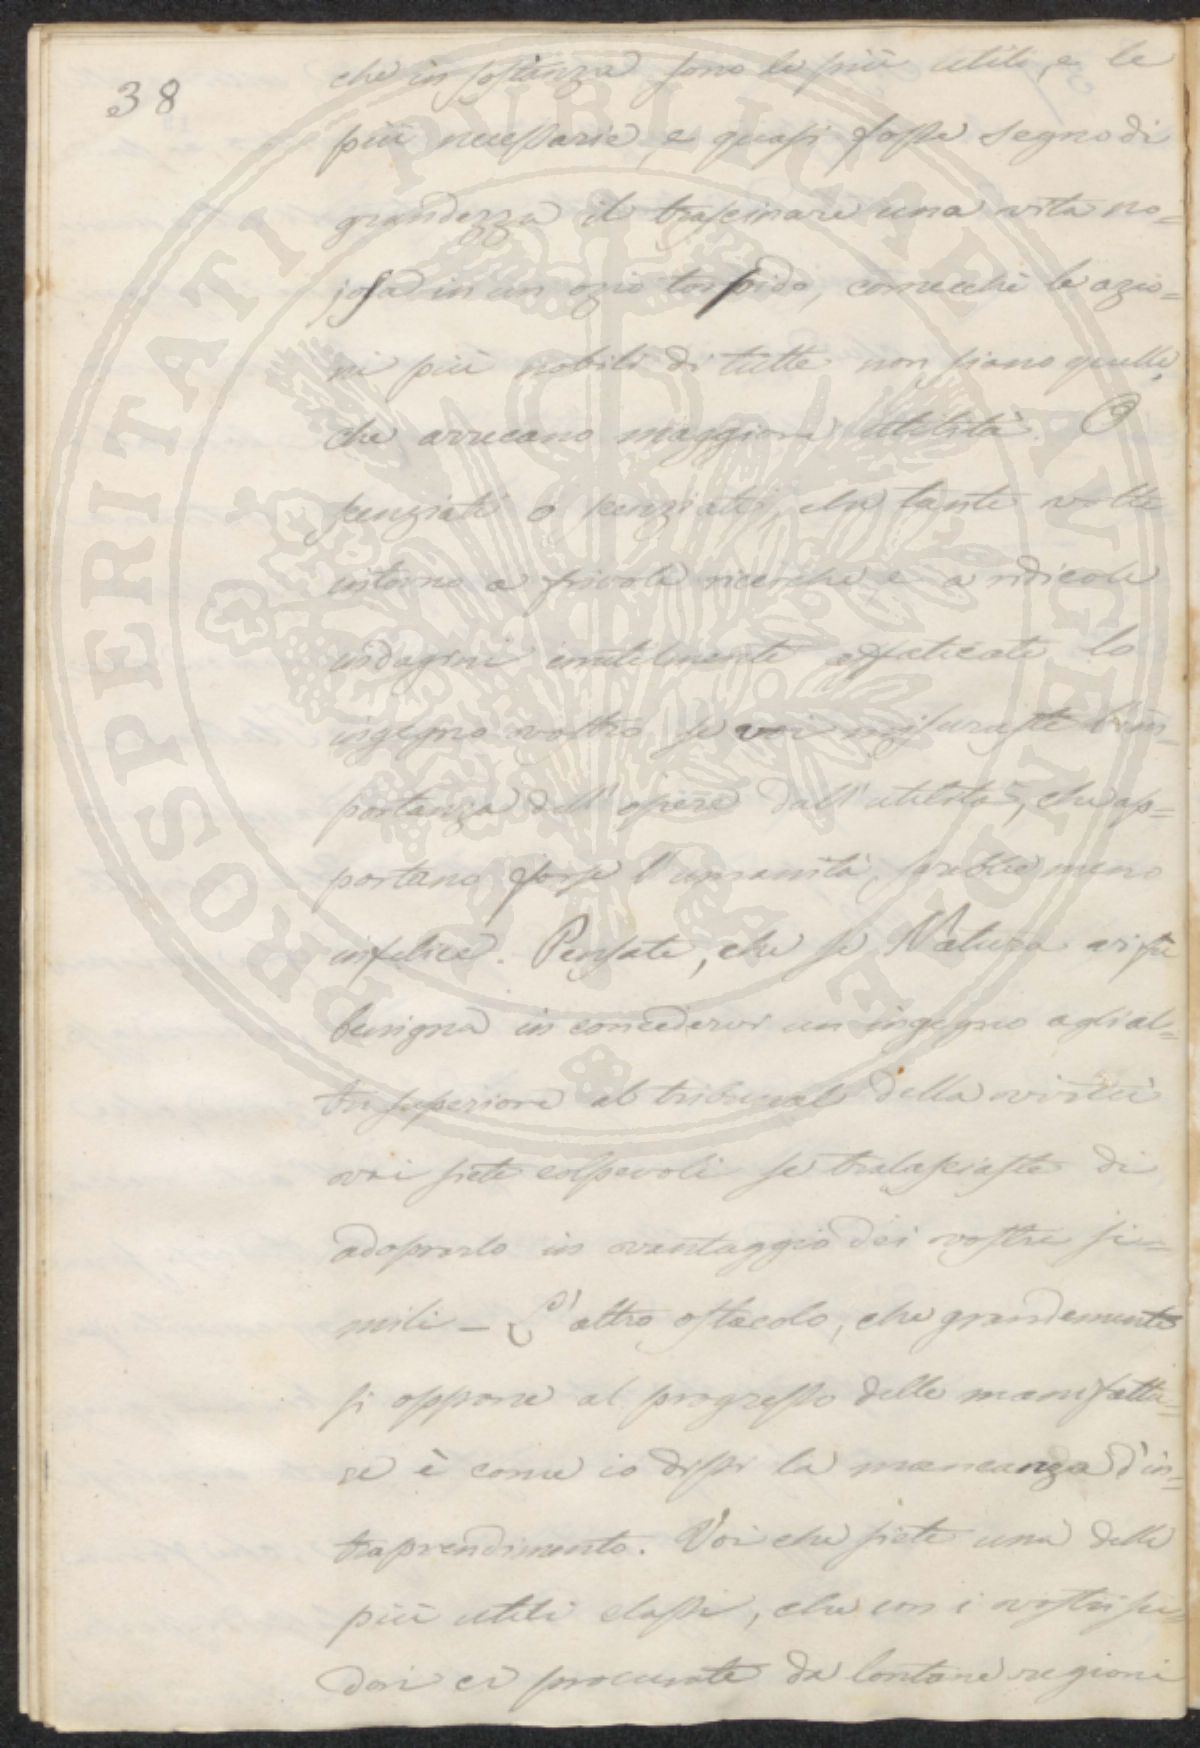 38
che in sostanza sono le più utili, e le
più necessarie, e quasi fosse segno di
grandezza il trascinare una vita no=
josa in un ozio torpido, comecchè le azio=
ni più nobili di tutte non siano quelle,
che arrecano maggiore utilità. O
scenziati o scenziati, che tante volte
intorno a frivole ricerche, e a ridicole
indagini inutilmente affaticate lo
ingegno vostro, se voi misuraste l'im=
portanza dell'opere dall'utilità, che ap=
portano forse l'umanità sarebbe meno
infelice. Pensate, che se Natura vi fu
benigna in concedervi un ingegno agli al=
tri superiore al tribunal della virtù
voi siete colpevoli se tralasciaste di
adoprarlo in vantaggio dei vostri si=
mili _ L'altro ostacolo, che grandemente
si oppone al progresso delle manifattu=
re è come io dissi la mancanza d'in=
traprendimento. Voi che siete una delle
più utili classi, che con i vostri su=
dori ci procurate da lontane regioni
PROSPERITATI PUBLICAE AUGENDAE